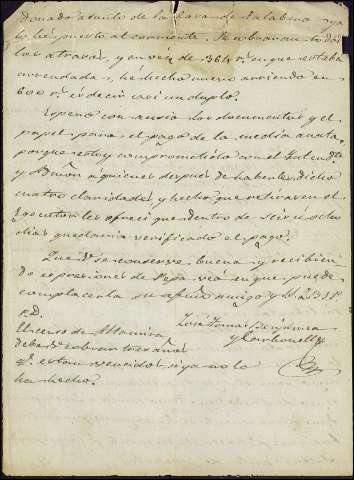 donado asunto de la Grande Palabra y ya
lo he puesto al corriente. Se cobraran todos
los atrasos, y en vez de 364 rs en que estaba
arrendada, he hecho nuevo arriendo en
600 rs es decir casi un duplo.
Espero con ansia los documentos y el
papel para el pago de la media anata,
porque estoy comprometido con el Intendte
y Admon a quienes despues de haberles dicho
cuatro claridades, y hecho que retirasen el
Ejecutor les ofreci que dentro de seis u ocho
dias quedaria verificado el pago.
Que Vd se conserve buena y recibien-
do expresiones de Pepa vea en que puede
complacerla su afmo amigo y S. S. Q. S. P. B.
P.D.
José Tomas
y Carbonell
El censo de Altamira
debe Vd cobrar tres años
qe estan vencidos, si ya no lo
ha hecho.